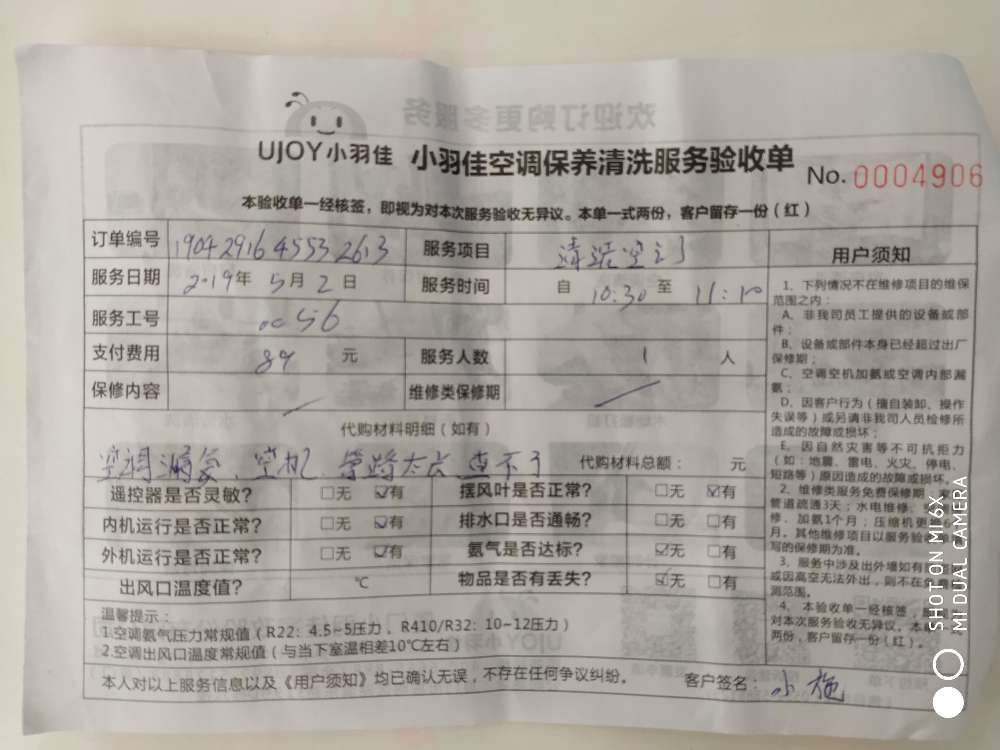 UJOY小羽佳 小羽佳空调保养清洗服务验收单 No. 0004906
本验收单一经核签，即视为对本次服务验收无异议。本单一式两份，客户留存一份（红）
订单编号 1904 2916 4553 2613 服务项目 清洗空调
服务日期 2019年 5月 2日 服务时间 自 10:30 至 11:10
服务工号 0056
支付费用 89 元 服务人数 1 人
保修内容 维修类保修期
代购材料明细（如有）
空调漏氨、空机、管路太长 查不了 代购材料总额： 元
遥控器是否灵敏？ □无 ☑有 摆风叶是否正常？ □无 ☑有
内机运行是否正常？ □无 ☑有 排水口是否通畅？ □无 □有
外机运行是否正常？ □无 ☑有 氨气是否达标？ ☑无 □有
出风口温度值？ ℃ 物品是否有丢失？ ☑无 □有
温馨提示：
1.空调氨气压力常规值（R22：4.5~5压力，R410/R32：10~12压力）
2.空调出风口温度常规值（与当下室温相差10℃左右）
本人对以上服务信息以及《用户须知》均已确认无误，不存在任何争议纠纷。 客户签名：小施
用户须知
1、下列情况不在维修项目的维保
范围之内：
A、非我司员工提供的设备或部
件；
B、设备或部件本身已经超过出厂
保修期；
C、空调空机加氨或空调内部漏
氨；
D、因客户行为（擅自装卸、操作
失误等）或另请非我司人员检修所
造成的故障或损坏；
E、因自然灾害等不可抗拒力
（如：地震、雷电、火灾、停电、
短路等）原因造成的故障或损坏。
2、维修类服务免费保修期
管道疏通3天；水电维修、
修、加氨1个月；压缩机更
月。其他维修项目以服务验
写的保修期为准。
3、服务中涉及出外墙如有
或因高空无法外出，则不在
测范围。
4、本验收单一经核签，
对本次服务验收无异议。本
两份，客户留存一份（红）。
欢迎订购更多服务
SHOT ON MI 6X
MI DUAL CAMERA